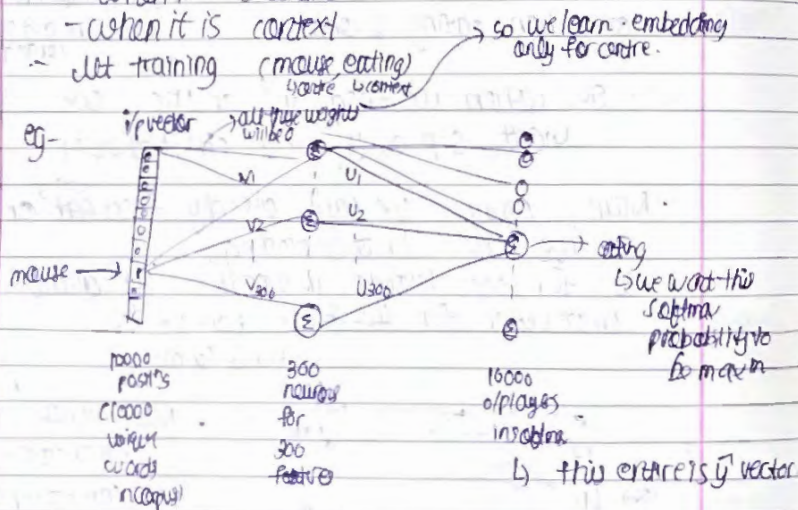 - when it is context
- let training (mouse, eating)
↳ centre ↳ context
→ so we learn embedding
only for centre.
eg-
i/p vector
→ all these weights
will be 0
V1
V2
V300
U1
U2
U300
Σ
Σ
Σ
Σ
mouse →
→ eating
↳ we want this
softma
probability to
be maxm
10000
C10000
unique
words
in corpus)
300
neurons
for
300
10000
o/p layer
in softma
↳ this entire is ŷ vector